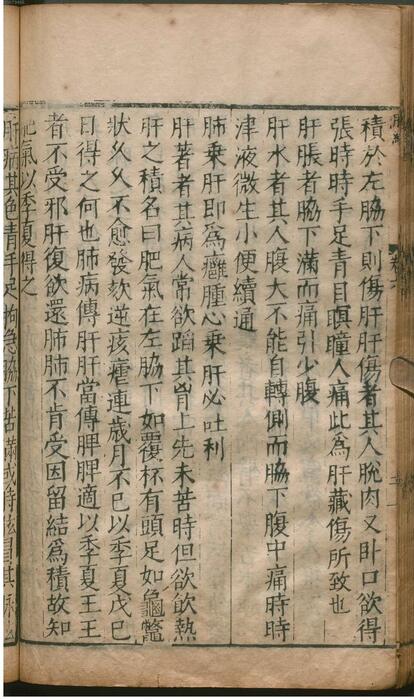 積於左脇下則傷肝肝傷者其人脫肉又卧口欲得
張時時手足青目瞑瞳人痛此為肝藏傷所致也
肝脹者脇下滿而痛引少腹
肝水者其人腹大不能自轉側而脇下腹中痛時時
津液微生小便續通
肺乗肝即為癰腫心乗肝必吐利
肝著者其病人常欲蹈其胷上先未苦時但欲飲熱
肝之積名曰肥氣在左脇下如覆杯有頭足如龜鱉
狀久久不愈發欬逆痎瘧連歲月不已以季夏戊己
日得之何也肺病傳肝肝當傳脾脾適以季夏王王
者不受邪肝復欲還肺肺不肯受因留結為積故知
肥氣以季夏得之
肝病其色青手足拘急脇下苦滿或時眩冒其脉